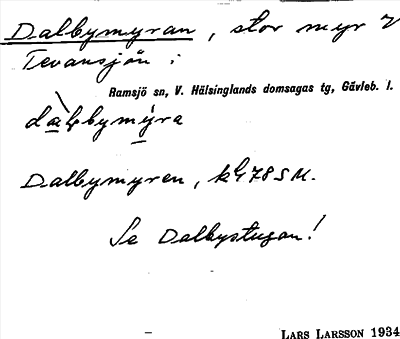 Dalbymyran, stor myr V
Tevansjön i
Ramsjö sn, V. Hälsinglands domsagas tg, Gävleb. l.
Dalbymyren, k
Se Dalbystugan!
LARS LARSSON 1934